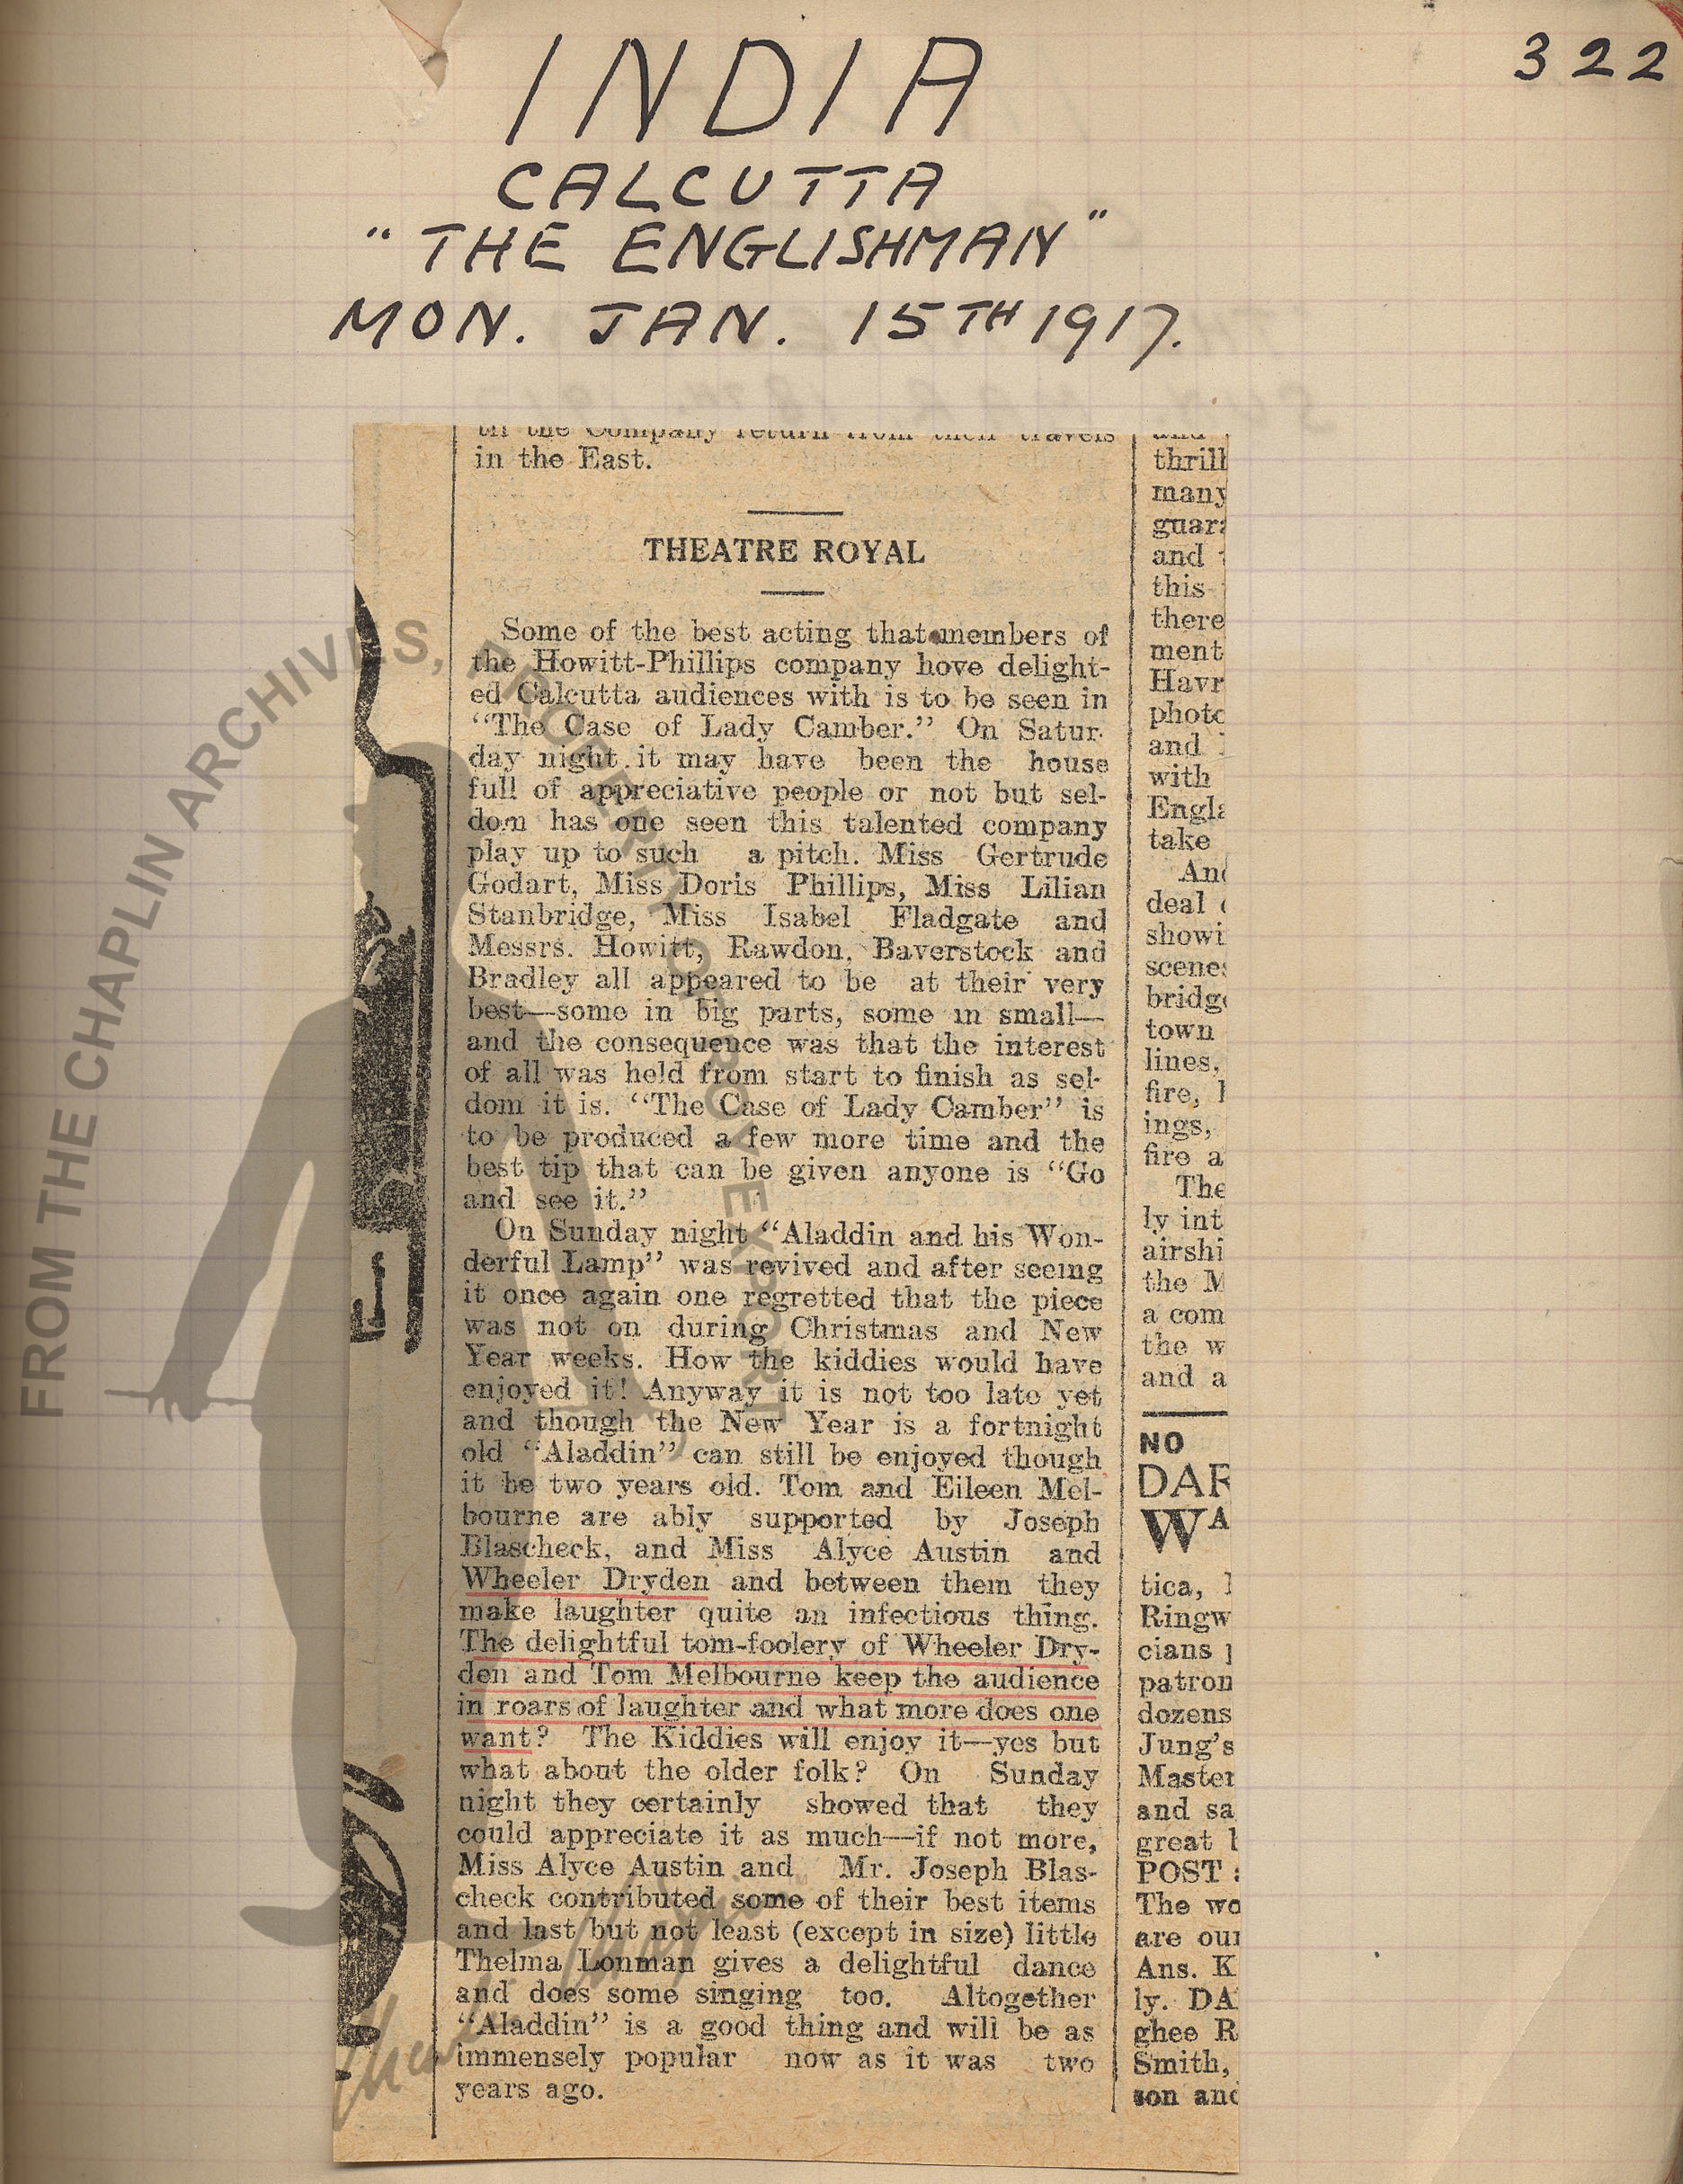 322
INDIA
CALCUTTA
"THE ENGLISHMAN"
MON. JAN. 15TH 1917.
til the Company return from their travels
in the East.
THEATRE ROYAL
Some of the best acting that members of
the Howitt-Phillips company hove delight-
ed Calcutta audiences with is to be seen in
"The Case of Lady Camber." On Satur-
day night it may have been the house
full of appreciative people or not but sel-
dom has one seen this talented company
play up to such a pitch. Miss Gertrude
Godart, Miss Doris Phillips, Miss Lilian
Stanbridge, Miss Isabel Fladgate and
Messrs. Howitt, Rawdon, Baverstock and
Bradley all appeared to be at their very
best—some in big parts, some in small—
and the consequence was that the interest
of all was held from start to finish as sel-
dom it is. "The Case of Lady Camber" is
to be produced a few more time and the
best tip that can be given anyone is "Go
and see it."
On Sunday night "Aladdin and his Won-
derful Lamp" was revived and after seeing
it once again one regretted that the piece
was not on during Christmas and New
Year weeks. How the kiddies would have
enjoyed it! Anyway it is not too late yet
and though the New Year is a fortnight
old "Aladdin" can still be enjoyed though
it be two years old. Tom and Eileen Mel-
bourne are ably supported by Joseph
Blascheck, and Miss Alyce Austin and
Wheeler Dryden and between them they
make laughter quite an infectious thing.
The delightful tom-foolery of Wheeler Dry-
den and Tom Melbourne keep the audience
in roars of laughter and what more does one
want? The Kiddies will enjoy it—yes but
what about the older folk? On Sunday
night they certainly showed that they
could appreciate it as much—if not more,
Miss Alyce Austin and Mr. Joseph Blas-
check contributed some of their best items
and last but not least (except in size) little
Thelma Lonman gives a delightful dance
and does some singing too. Altogether
"Aladdin" is a good thing and will be as
immensely popular now as it was two
years ago.
thrill
many
and
this
there
ment
Havr
photo
and
with
Engla
take
And
deal
showi
scenes
bridge
town
lines,
fire,
ings,
fire a
The
ly int
airshi
the M
a com
the w
and a
NO
DAR
WA
tica,
Ringw
cians
patron
dozens
Jung's
Master
and sa
great
POST
The wo
are our
Ans. K
ly. DA
ghee R
Smith,
son and
FROM THE CHAPLIN ARCHIVES, PROPERTY OF ROY EXPORT